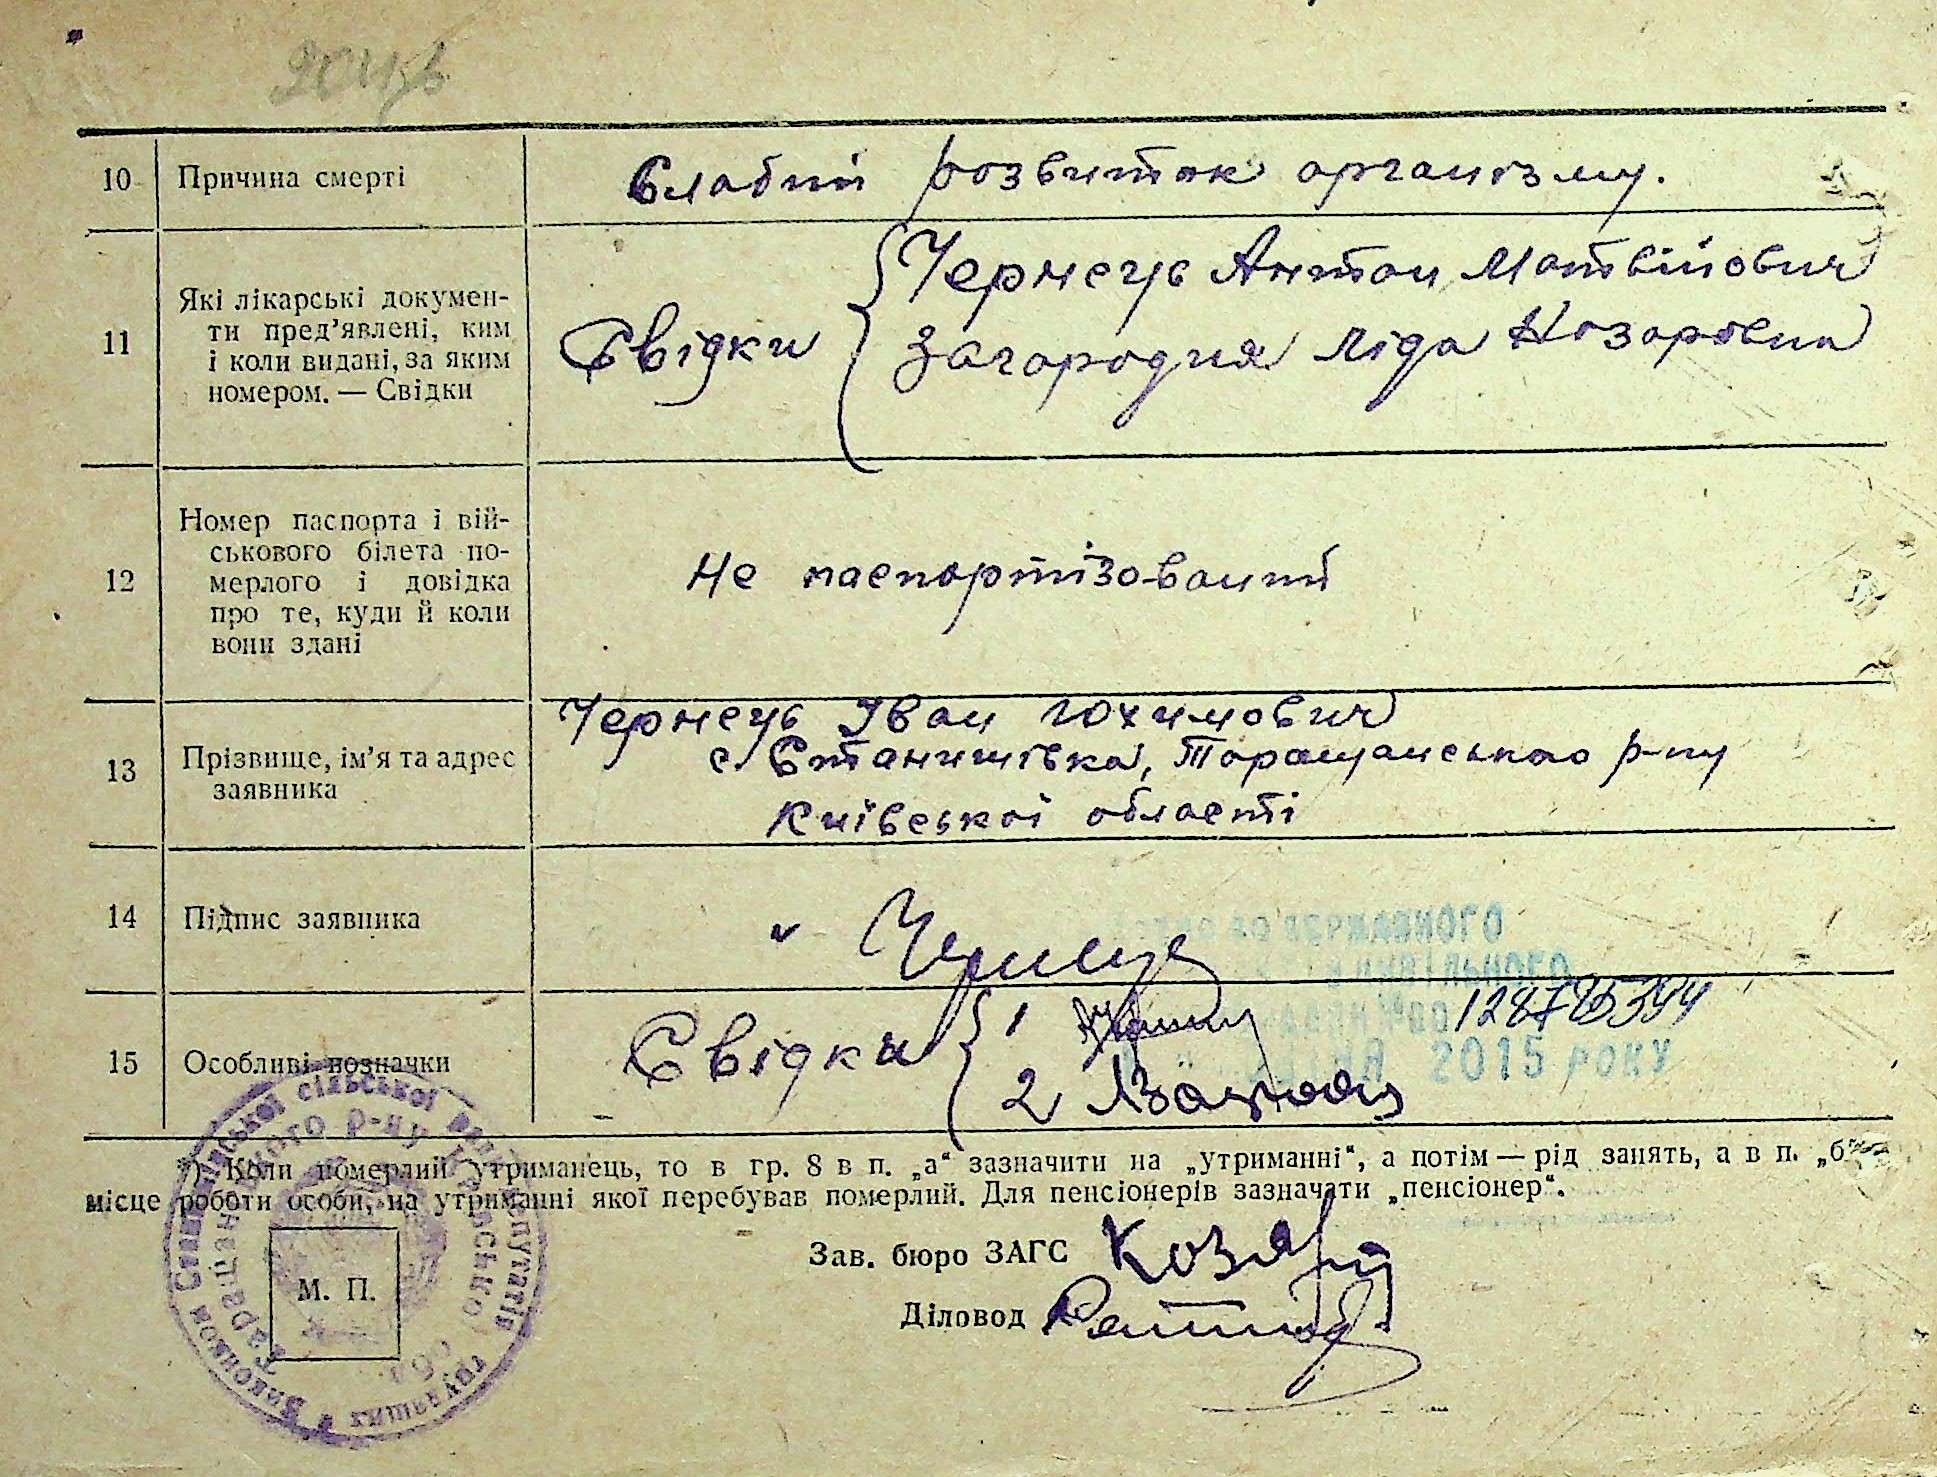 10 Причина смерті Слабий розвиток організму.
11 Які лікарські докумен-
ти пред’явлені, ким
і коли видані, за яким
номером. — Свідки
Свідки { Чернець Антон Матвійович
Загородня Ліда Назаровна
12 Номер паспорта і вій-
ськового білета по-
мерлого і довідка
про те, куди й коли
вони здані
Не паспортізований
13 Прізвище, ім’я та адрес
заявника
Чернець Іван Юхимович
с. Станишівка, Таращанського р-ну
Київської області
14 Підпис заявника Чернець
ДЕРЖАВНОГО
ЦИВІЛЬНОГО
15 Особливі возначки
Свідки { 1
2
2015 РОКУ
*) Коли померлий утриманець, то в гр. 8 в п. „а“ зазначити на „утриманні“, а потім — рід занять, а в п. „б“
місце роботи особи, на утриманні якої перебував померлий. Для пенсіонерів зазначати „пенсіонер“.
Зав. бюро ЗАГС
Діловод
М. П.
Виконком сільської ради депутатів трудящих
р-ну обл.